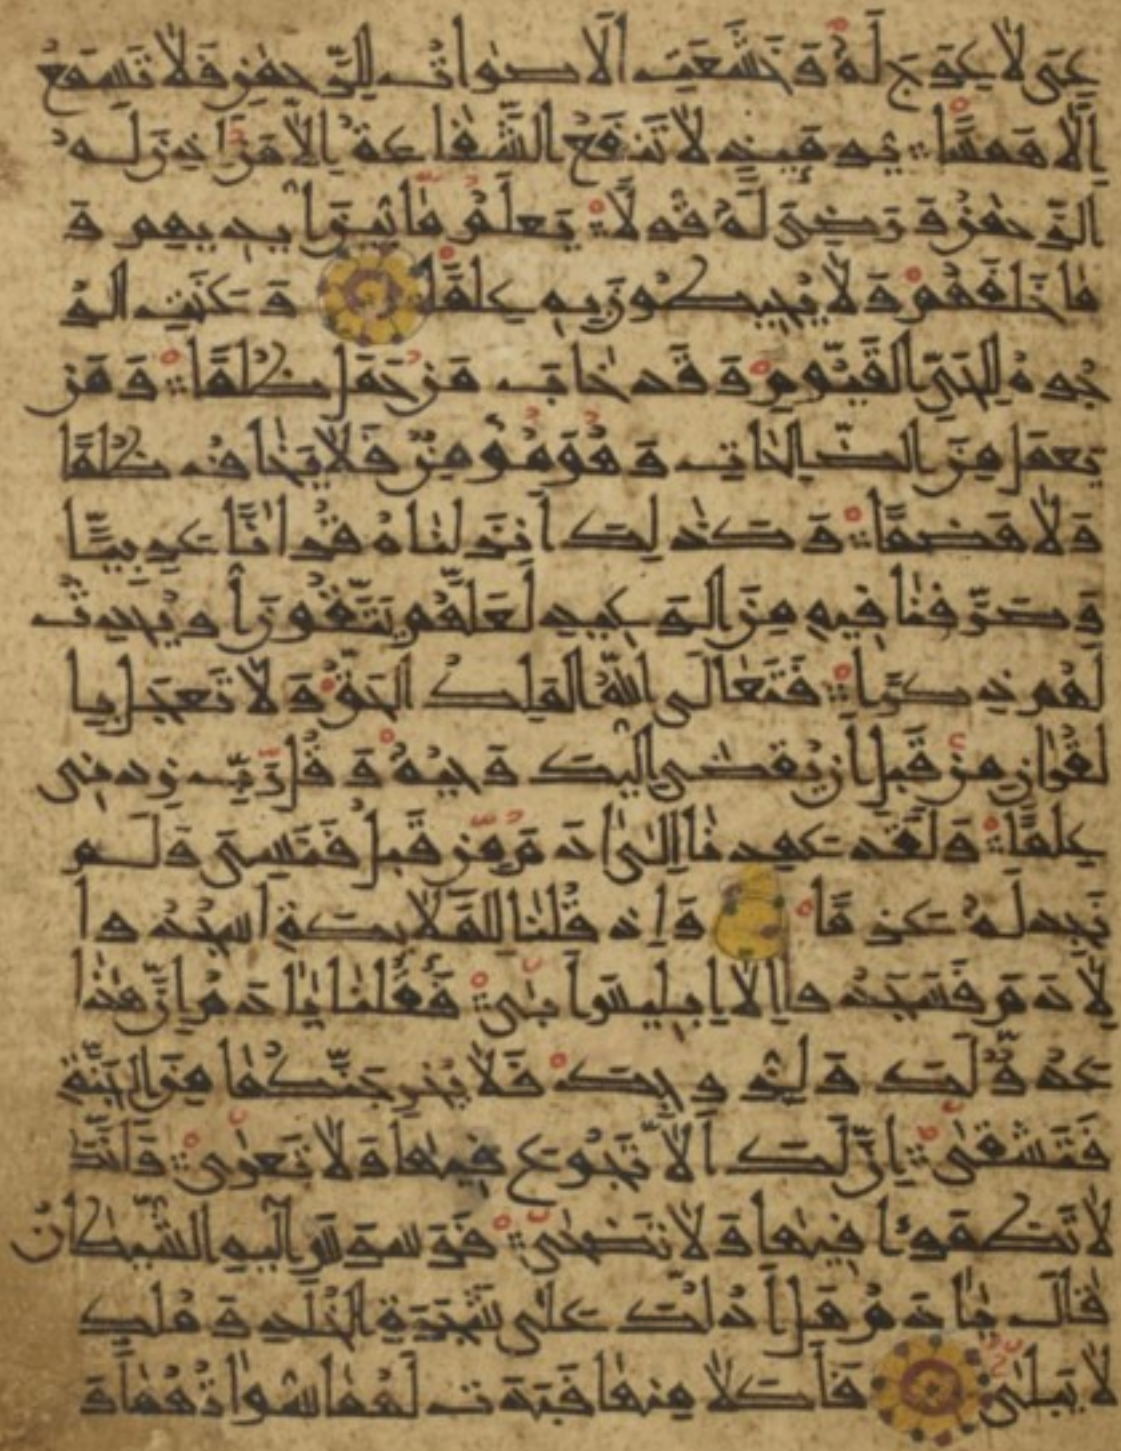 عِيَ لَا عِوَجَ لَهُ وَخَشَعَتِ الْأَصْوَاتُ لِلرَّحْمٰنِ فَلَا تَسْمَعُ
إِلَّا هَمْسًا ۞ يَوْمَئِذٍ لَا تَنْفَعُ الشَّفَاعَةُ إِلَّا مَنْ أَذِنَ لَهُ
الرَّحْمٰنُ وَرَضِيَ لَهُ قَوْلًا ۞ يَعْلَمُ مَا بَيْنَ أَيْدِيهِمْ وَ
مَا خَلْفَهُمْ وَلَا يُحِيطُونَ بِهِ عِلْمًا ۞ وَعَنَتِ الْوُ
جُوهُ لِلْحَيِّ الْقَيُّومِ وَقَدْ خَابَ مَنْ حَمَلَ ظُلْمًا ۞ وَمَنْ
يَعْمَلْ مِنَ الصَّالِحَاتِ وَهُوَ مُؤْمِنٌ فَلَا يَخَافُ ظُلْمًا
وَلَا هَضْمًا ۞ وَكَذٰلِكَ أَنْزَلْنَاهُ قُرْآنًا عَرَبِيًّا
وَصَرَّفْنَا فِيهِ مِنَ الْوَعِيدِ لَعَلَّهُمْ يَتَّقُونَ أَوْ يُحْدِثُ
لَهُمْ ذِكْرًا ۞ فَتَعَالَى اللّٰهُ الْمَلِكُ الْحَقُّ وَلَا تَعْجَلْ بِا
لْقُرْآنِ مِنْ قَبْلِ أَنْ يُقْضٰى إِلَيْكَ وَحْيُهُ وَقُلْ رَبِّ زِدْنِي
عِلْمًا ۞ وَلَقَدْ عَهِدْنَا إِلٰى آدَمَ مِنْ قَبْلُ فَنَسِيَ وَلَمْ
نَجِدْ لَهُ عَزْمًا ۞ وَإِذْ قُلْنَا لِلْمَلَائِكَةِ اسْجُدُوا
لِآدَمَ فَسَجَدُوا إِلَّا إِبْلِيسَ أَبٰى ۞ فَقُلْنَا يَا آدَمُ إِنَّ هٰذَا
عَدُوٌّ لَكَ وَلِزَوْجِكَ فَلَا يُخْرِجَنَّكُمَا مِنَ الْجَنَّةِ
فَتَشْقٰى ۞ إِنَّ لَكَ أَلَّا تَجُوعَ فِيهَا وَلَا تَعْرٰى ۞ وَأَنَّكَ
لَا تَظْمَؤُا فِيهَا وَلَا تَضْحٰى ۞ فَوَسْوَسَ إِلَيْهِ الشَّيْطَانُ
قَالَ يَا آدَمُ هَلْ أَدُلُّكَ عَلٰى شَجَرَةِ الْخُلْدِ وَمُلْكٍ
لَا يَبْلٰى ۞ فَأَكَلَا مِنْهَا فَبَدَتْ لَهُمَا سَوْآتُهُمَا وَ